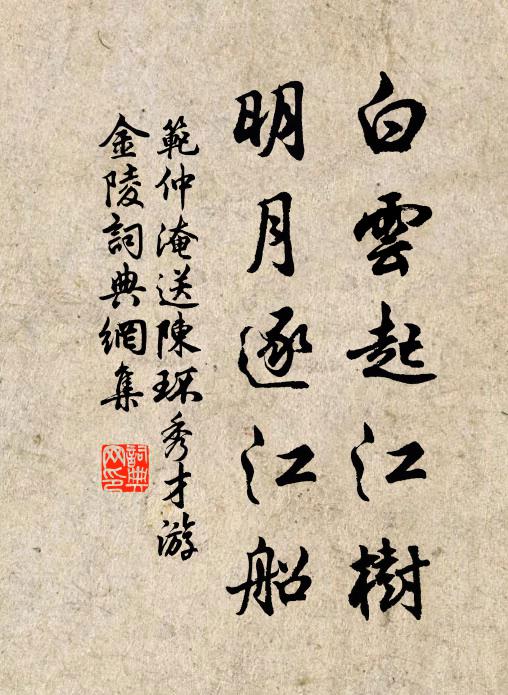 白雲起江樹
明月逐江船
範仲淹送陳琛秀才游
金陵詞典網集
詞典网印